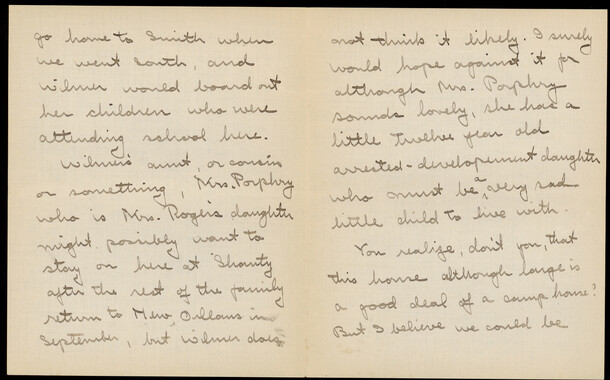 go home to Smith when
we went South, and
Wilmer would board out
her children who were
attending school here.
Wilmer's aunt, or cousin
or something, Mrs. Porphry
who is Mrs. Roger's daughter
might possibly want to
stay on here at Shanty
after the rest of the family
return to New Orleans in
September, but Wilmer does
not think it likely. I surely
would hope against it for
although Mrs. Porphry
sounds lovely, she has a
little twelve year old
arrested-developement daughter
who must be a very sad
little child to live with.
You realize, don't you, that
this house although large is
a good deal of a camp house?
But I believe we could be